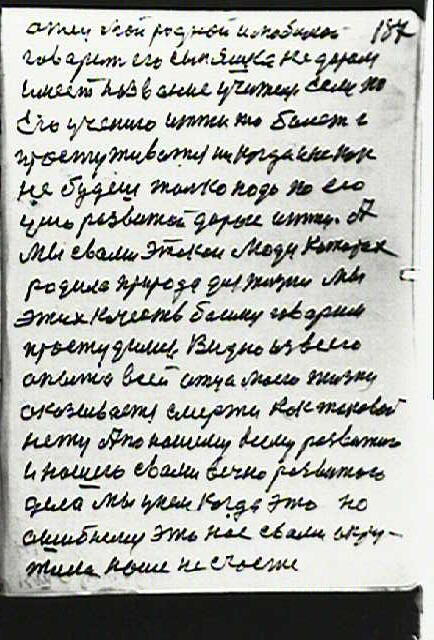 отец мой родной и любимой 187
говорит его сыняшка не даром
имеет название учитель если по
его учению итти то болеть и
простуживатся никогда ни как
не будеш только подь по его
уно развитой дороге итти. А
мы свами этакаи люди которех
родила природа для жизни мы
этих качеств боимся говорим
простудимся Видно из всего
опыта всей отца моего жизни
оказывается смерти как таковой
нету А по нашему всему развитого
и нашего свами вечно развитого
дела мы умем когда это но
ошибнему это нас свами окру-
жила наше несчастье